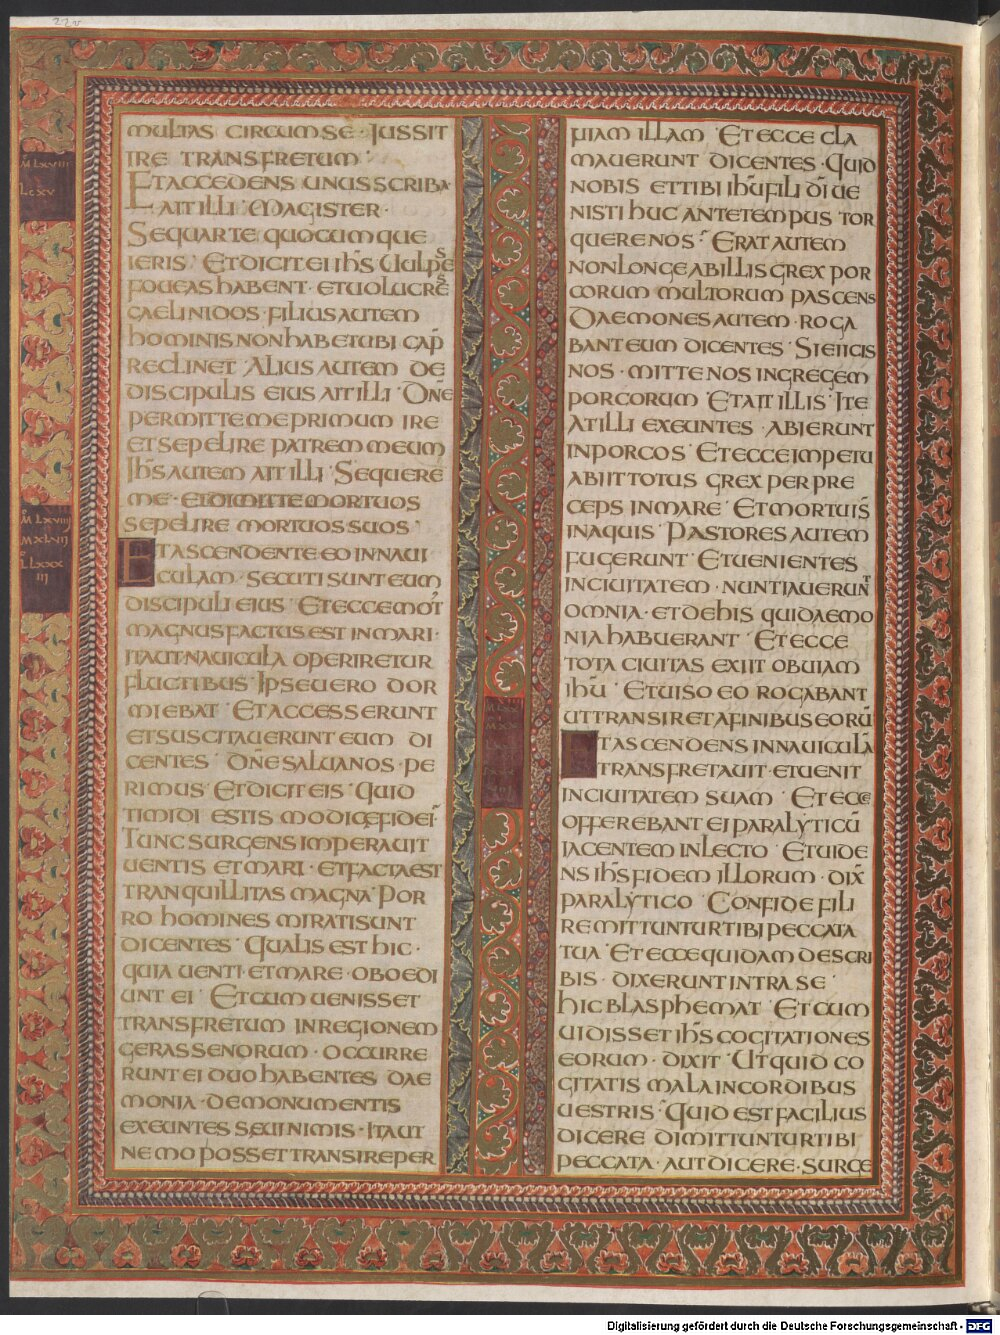 22v
M LXVIIII
L CXV
MULTAS CIRCUM SE · JUSSIT
IRE TRANS FRETUM
ET ACCEDENS UNUS SCRIBA
AIT ILLI · MAGISTER ·
SEQUAR TE QUOCUMQUE
IERIS · ET DICIT EI IHS̄ VULPES
FOUEAS HABENT · ET UOLUCRES
CAELI NIDOS · FILIUS AUTEM
HOMINIS NON HABET UBI CAP̄
RECLINET · ALIUS AUTEM DE
DISCIPULIS EIUS AIT ILLI · DN̄E
PERMITTE ME PRIMUM IRE
ET SEPELIRE PATREM MEUM
IHS̄ AUTEM AIT ILLI · SEQUERE
ME · ET DIMITTE MORTUOS
SEPELIRE MORTUOS SUOS ·
M LXVIIII
M XLVII
L LXXX
III
ET ASCENDENTE EO IN NAUI
CULAM · SECUTI SUNT EUM
DISCIPULI EIUS · ET ECCE MOT̄
MAGNUS FACTUS EST IN MARI ·
ITA UT NAUICULA OPERIRETUR
FLUCTIBUS · IPSE UERO DOR
MIEBAT · ET ACCESSERUNT
ET SUSCITAUERUNT EUM DI
CENTES · DN̄E SALUA NOS · PE
RIMUS · ET DICIT EIS · QUID
TIMIDI ESTIS MODICĘ FIDEI ·
TUNC SURGENS IMPERAUIT
UENTIS ET MARI · ET FACTA EST
TRANQUILLITAS MAGNA · POR
RO HOMINES MIRATI SUNT
DICENTES · QUALIS EST HIC ·
QUIA UENTI ET MARE · OBOEDI
UNT EI · ET CUM UENISSET
TRANS FRETUM IN REGIONEM
GERASSENORUM · OCCURRE
RUNT EI DUO HABENTES DAE
MONIA · DE MONUMENTIS
EXEUNTES SAEUI NIMIS · ITA UT
NEMO POSSET TRANSIRE PER
UIAM ILLAM · ET ECCE CLA
MAUERUNT DICENTES · QUID
NOBIS ET TIBI IHŪ FILI DĪ UE
NISTI HUC ANTE TEMPUS TOR
QUERE NOS · ERAT AUTEM
NON LONGE AB ILLIS GREX POR
CORUM MULTORUM PASCENS
DAEMONES AUTEM · ROGA
BANT EUM DICENTES · SI EIICIS
NOS · MITTE NOS IN GREGEM
PORCORUM · ET AIT ILLIS · ITE
AT ILLI EXEUNTES · ABIERUNT
IN PORCOS · ET ECCE IMPETU
ABIIT TOTUS GREX PER PRE
CEPS IN MARE · ET MORTUI S̄
IN AQUIS · PASTORES AUTEM
FUGERUNT · ET UENIENTES
IN CIUITATEM · NUNTIAUERUNT
OMNIA · ET DE HIS QUI DAEMO
NIA HABUERANT · ET ECCE
TOTA CIUITAS EXIIT OBUIAM
IHŪ · ET UISO EO ROGABANT
UT TRANSIRET A FINIBUS EORŪ
ET ASCENDENS IN NAUICULĀ
TRANSFRETAUIT · ET UENIT
IN CIUITATEM SUAM · ET ECCE
OFFEREBANT EI PARALYTICŪ
IACENTEM IN LECTO · ET UIDE
NS IHS̄ FIDEM ILLORUM · DIX̄
PARALYTICO · CONFIDE FILI
REMITTUNTUR TIBI PECCATA
TUA · ET ECCE QUIDAM DE SCRI
BIS · DIXERUNT INTRA SE ·
HIC BLASPHEMAT · ET CUM
UIDISSET IHS̄ COGITATIONES
EORUM · DIXIT · UT QUID CO
GITATIS MALA IN CORDIBUS
UESTRIS · QUID EST FACILIUS
DICERE DIMITTUNTUR TIBI
PECCATA · AUT DICERE · SURGE
Digitalisierung gefördert durch die Deutsche Forschungsgemeinschaft - DFG